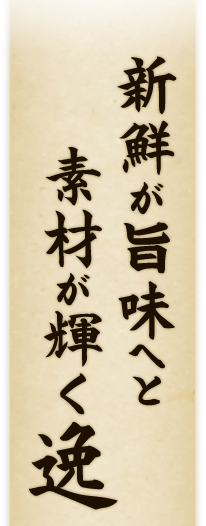 新鮮が旨味へと
素材が輝く逸